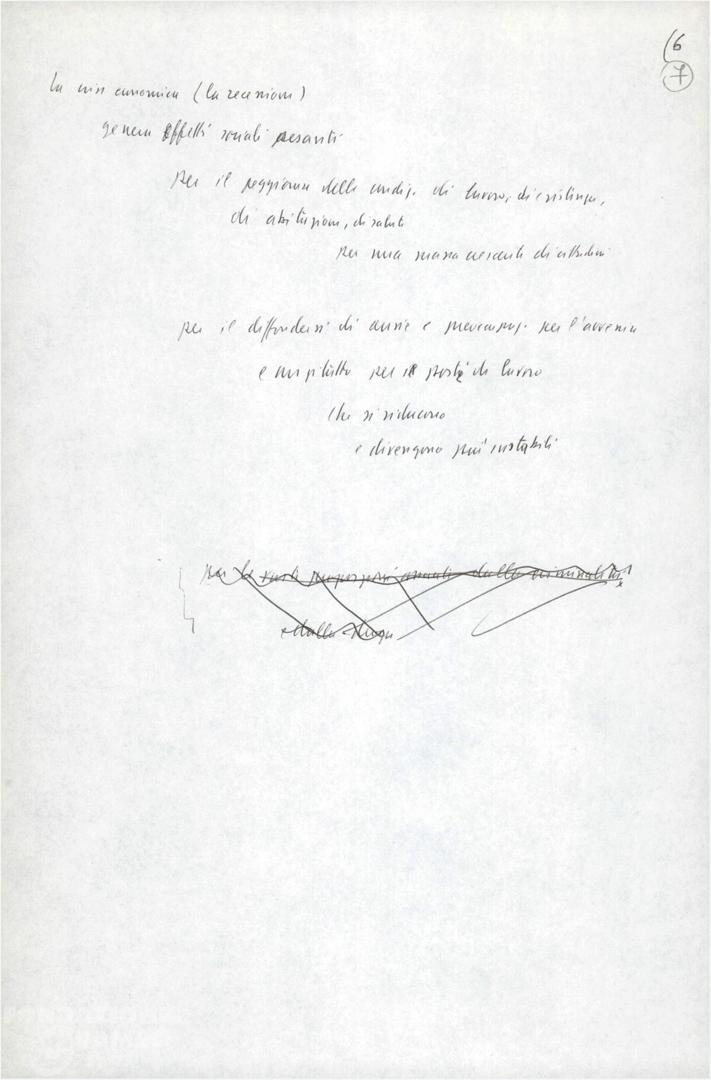 6
7
La crisi economica (la recessione)
genera effetti sociali pesanti
per il peggiorare delle condiz. di lavoro, di esistenza,
di abitazione, di salute
per una massa crescente di cittadini
per il diffondersi di ansie e preoccupaz. per l'avvenire
e soprattutto per i posti di lavoro
che si riducono
e divengono più instabili
per le vaste proporzioni assunte dalla criminalità
e dalla droga